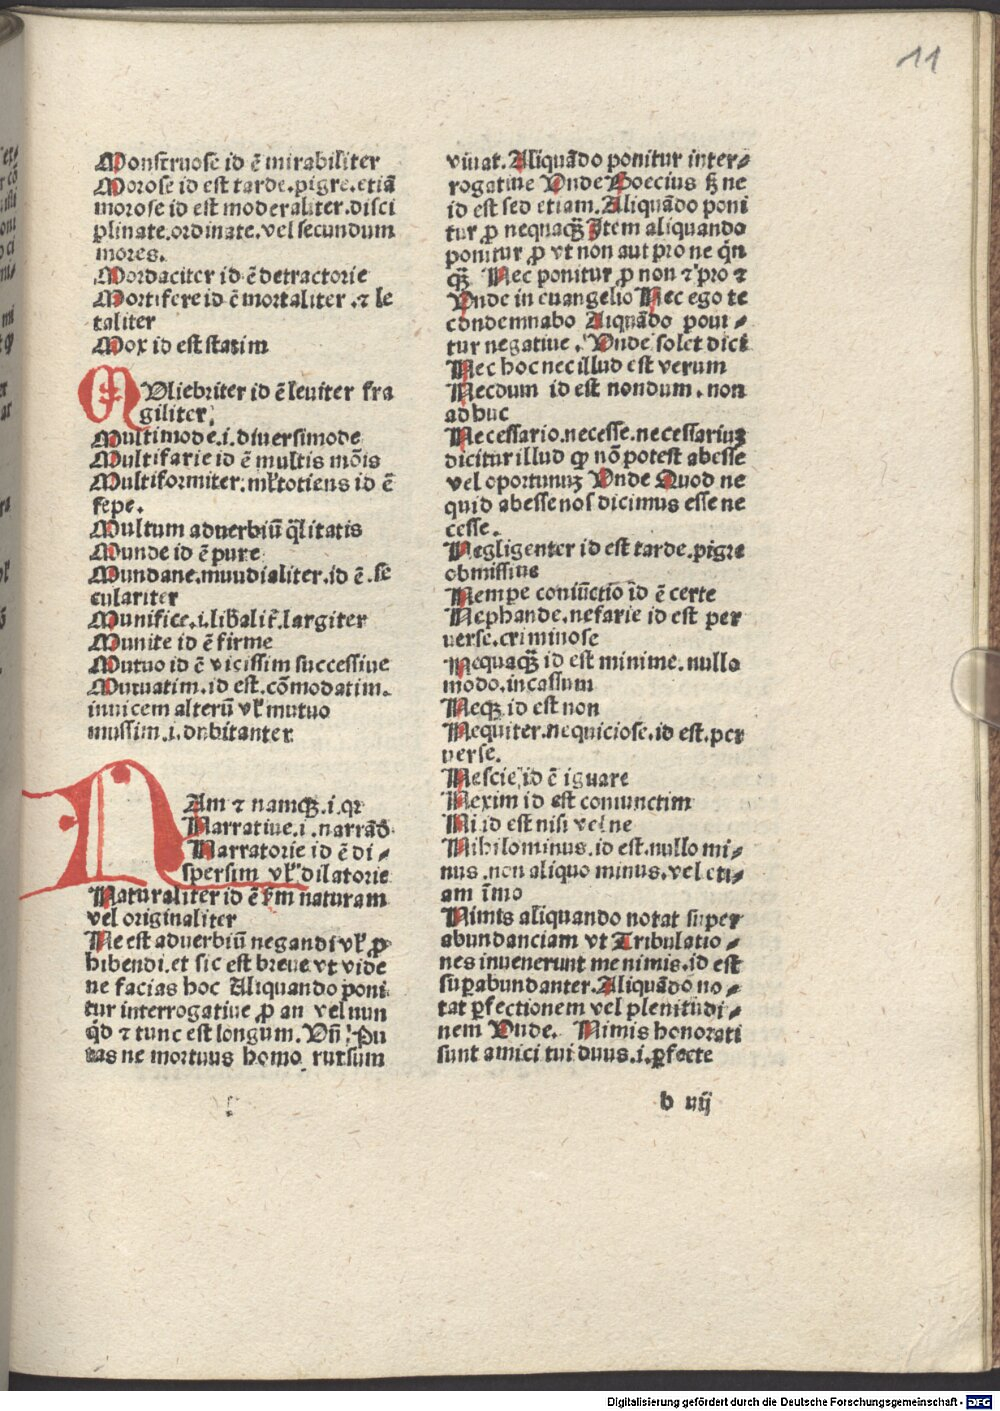 11
Monstruose id ē mirabiliter
Morose id est tarde.pigre.etiā
morose id est moderaliter.disci
plinate.ordinate.vel secundum
mores.
Mordaciter id ē detractorie
Mortifere id ē mortaliter .⁊ le
taliter
Mox id est statim
MUliebriter id ē leuiter fra
giliter.
Multimode.i.diuersimode
Multifarie id ē multis mōis
Multiformiter.ml̕totiens id ē
sepe.
Multum aduerbiū q̄litatis
Munde id ē pure
Mundane.mundialiter.id ē .se
culariter
Munifice.i.lib̄alit̄.largiter
Munite id ē firme
Mutuo id ē vicissim successiue
Mutuatim.id est.cōmodatim.
inuicem alterū vl̕ mutuo
mussim.i.dubitanter
NAm ⁊ namqꝫ.i.qꝛ
Narratiue.i.narrādo
Narratorie id ē di⸗
spersim vl̕ dilatorie
Naturaliter id ē s̄m naturam
vel originaliter
Ne est aduerbiū negandi vl̕ ꝓ
hibendi.et sic est breue vt vide
ne facias hoc Aliquando poni
tur interrogatiue ꝓ an vel nun
qd̄ ⁊ tunc est longum. Vn̄ Pu
tas ne mortuus homo rursum
viuat. Aliquādo ponitur inter⸗
rogatiue Vnde Boecius sꝫ ne
id est sed etiam. Aliquādo poni
tur ꝓ nequaqꝫ Item aliquando
ponitur ꝓ vt non aut pro ne q̄n
qꝫ Nec ponitur ꝓ non ⁊ pro ⁊
Vnde in euangelio Nec ego te
condemnabo Aliquādo poni⸗
tur negatiue. Vnde solet dici
Nec hoc nec illud est verum
Necdum id est nondum. non
adhuc
Necessario.necesse.necessariuꝫ
dicitur illud ꝙ nō potest abesse
vel oportunuꝫ Vnde Quod ne
quid abesse nos dicimus esse ne
cesse.
Negligenter id est tarde.pigre
obmissiue
Nempe coniūctio id ē certe
Nephande.nefarie id est per
uerse.criminose
Nequaqꝫ id est minime.nullo
modo.incassum
Neqꝫ id est non
Nequiter.nequiciose.id est.per
uerse.
Nescie id ē ignare
Nexim id est coniunctim
Ni.id est nisi vel ne
Nihilominus.id est.nullo mi⸗
nus.non aliquo minus.vel eti⸗
am īmo
Nimis aliquando notat super
abundanciam vt Tribulatio⸗
nes inuenerunt me nimis.id est
suꝑabundanter. Aliquādo no⸗
tat ꝑfectionem vel plenitudi⸗
nem Vnde. Nimis honorati
sunt amici tui duus.i.ꝑfecte
b iiij
Digitalisierung gefördert durch die Deutsche Forschungsgemeinschaft - DFG